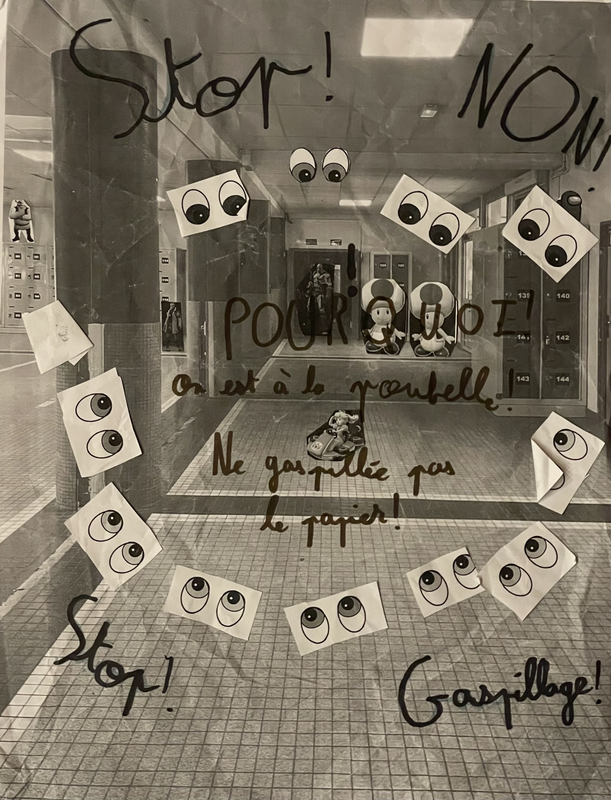 Stop!
NON!
POURQUOI!
on est à la poubelle!
Ne gaspillée pas
le papier!
Stop!
Gaspillage!
139
140
142
143
144